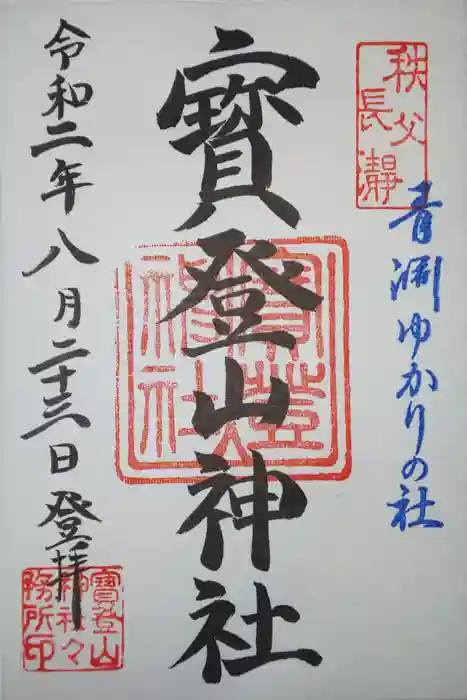 秩父
長瀞
青淵ゆかりの社
寳登山神社
令和二年八月二十三日 登拝
寳登山
神社々
務所印